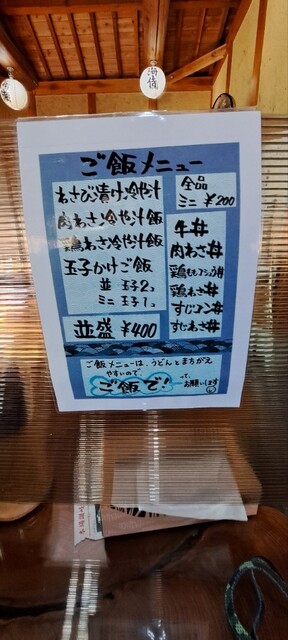 ご飯メニュー
わさび漬け冷や汁
肉わさ冷や汁飯
鶏わさ冷や汁飯
玉子かけご飯
並 玉子2コ
ミニ 玉子1コ
並盛 ¥400
全品
ミニ ¥200
牛丼
肉わさ丼
鶏わさ丼
すじコン丼
すじわさ丼
ご飯メニューは、うどんとまちがえ
やすいので、
ご飯で!
って、
お願いします